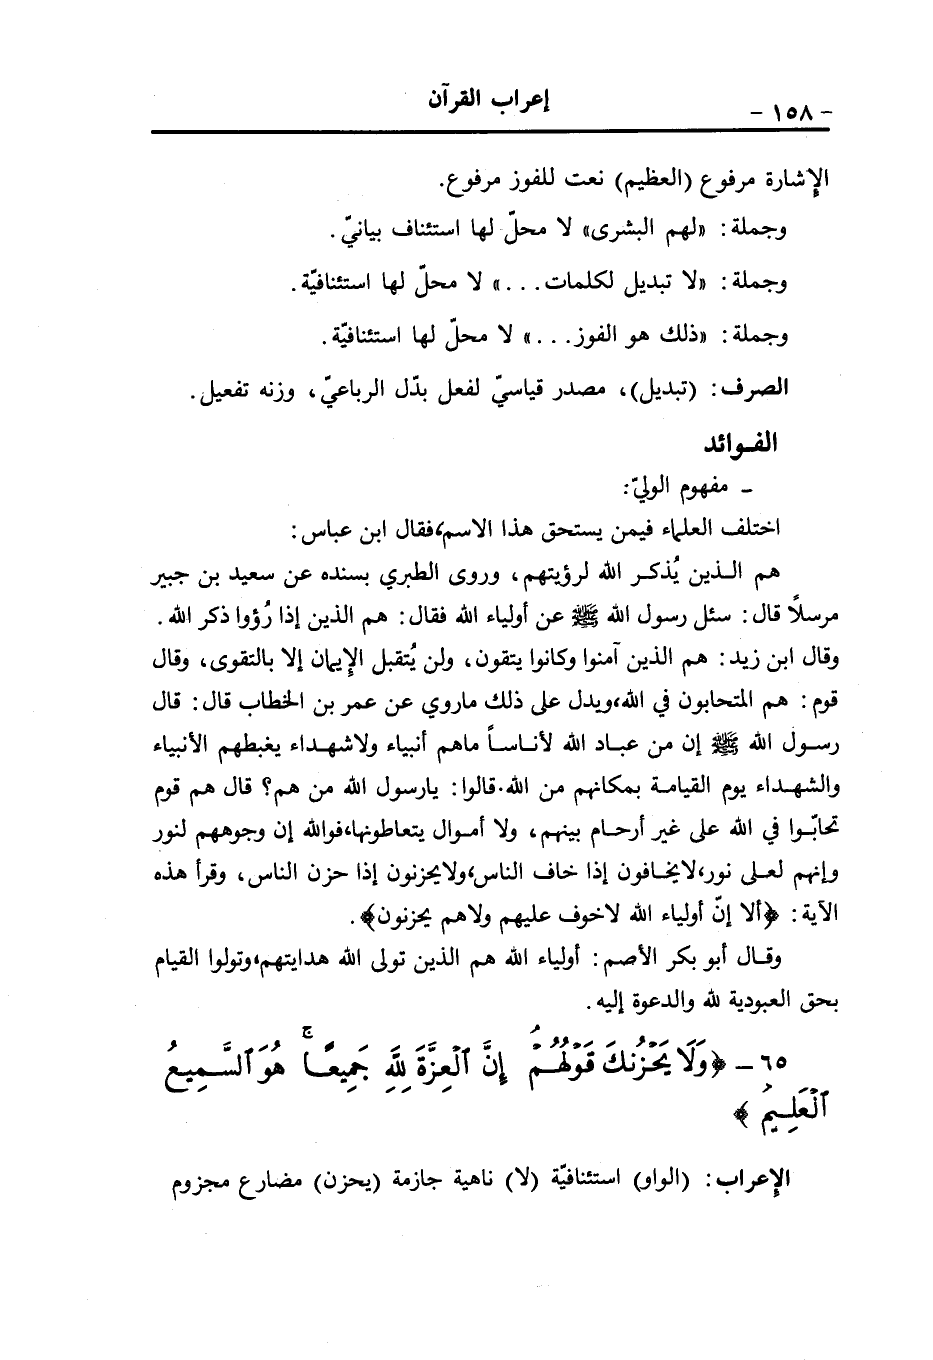 إعراب القرآن
- ١٥٨ -
الإشارة مرفوع (العظيم) نعت للفوز مرفوع.
وجملة: «لهم البشرى» لا محلّ لها استئناف بيانيّ.
وجملة: «لا تبديل لكلمات...» لا محلّ لها استئنافيّة.
وجملة: «ذلك هو الفوز...» لا محلّ لها استئنافيّة.
الصرف: (تبديل)، مصدر قياسيّ لفعل بدّل الرباعيّ، وزنه تفعيل.
الفـوائد
ـ مفهوم الوليّ:
اختلف العلماء فيمن يستحق هذا الاسم،فقال ابن عباس:
هم الـذين يُذكـر الله لرؤيتهم، وروى الطبري بسنده عن سعيد بن جبير
مرسلًا قال: سئل رسول الله ﷺ عن أولياء الله فقال: هم الذين إذا رُؤوا ذكر الله.
وقال ابن زيد: هم الذين آمنوا وكانوا يتقون، ولن يُتقبل الإيمان إلا بالتقوى، وقال
قوم: هم المتحابون في الله،ويدل على ذلك ماروي عن عمر بن الخطاب قال: قال
رسـول الله ﷺ إن من عبـاد الله لأنـاسـاً ماهم أنبياء ولاشهـداء يغبطهم الأنبياء
والشهـداء يوم القيامـة بمكانهم من الله.قالوا: يارسول الله من هم؟ قال هم قوم
تحابّـوا في الله على غير أرحـام بينهم، ولا أمـوال يتعاطونها،فوالله إن وجوههم لنور
وإنهم لعـلى نور،لايخـافون إذا خاف الناس،ولايحزنون إذا حزن الناس، وقرأ هذه
الآية: ﴿ألا إنّ أولياء الله لاخوف عليهم ولاهم يحزنون﴾.
وقـال أبو بكر الأصم: أولياء الله هم الذين تولى الله هدايتهم،وتولوا القيام
بحق العبودية لله والدعوة إليه.
٦٥ ـ ﴿وَلَا يَحْزُنكَ قَوْلُهُمْ ۘ إِنَّ ٱلْعِزَّةَ لِلَّهِ جَمِيعًا ۚ هُوَ ٱلسَّمِيعُ
ٱلْعَلِيمُ﴾
الإعراب: (الواو) استئنافيّة (لا) ناهية جازمة (يحزن) مضارع مجزوم